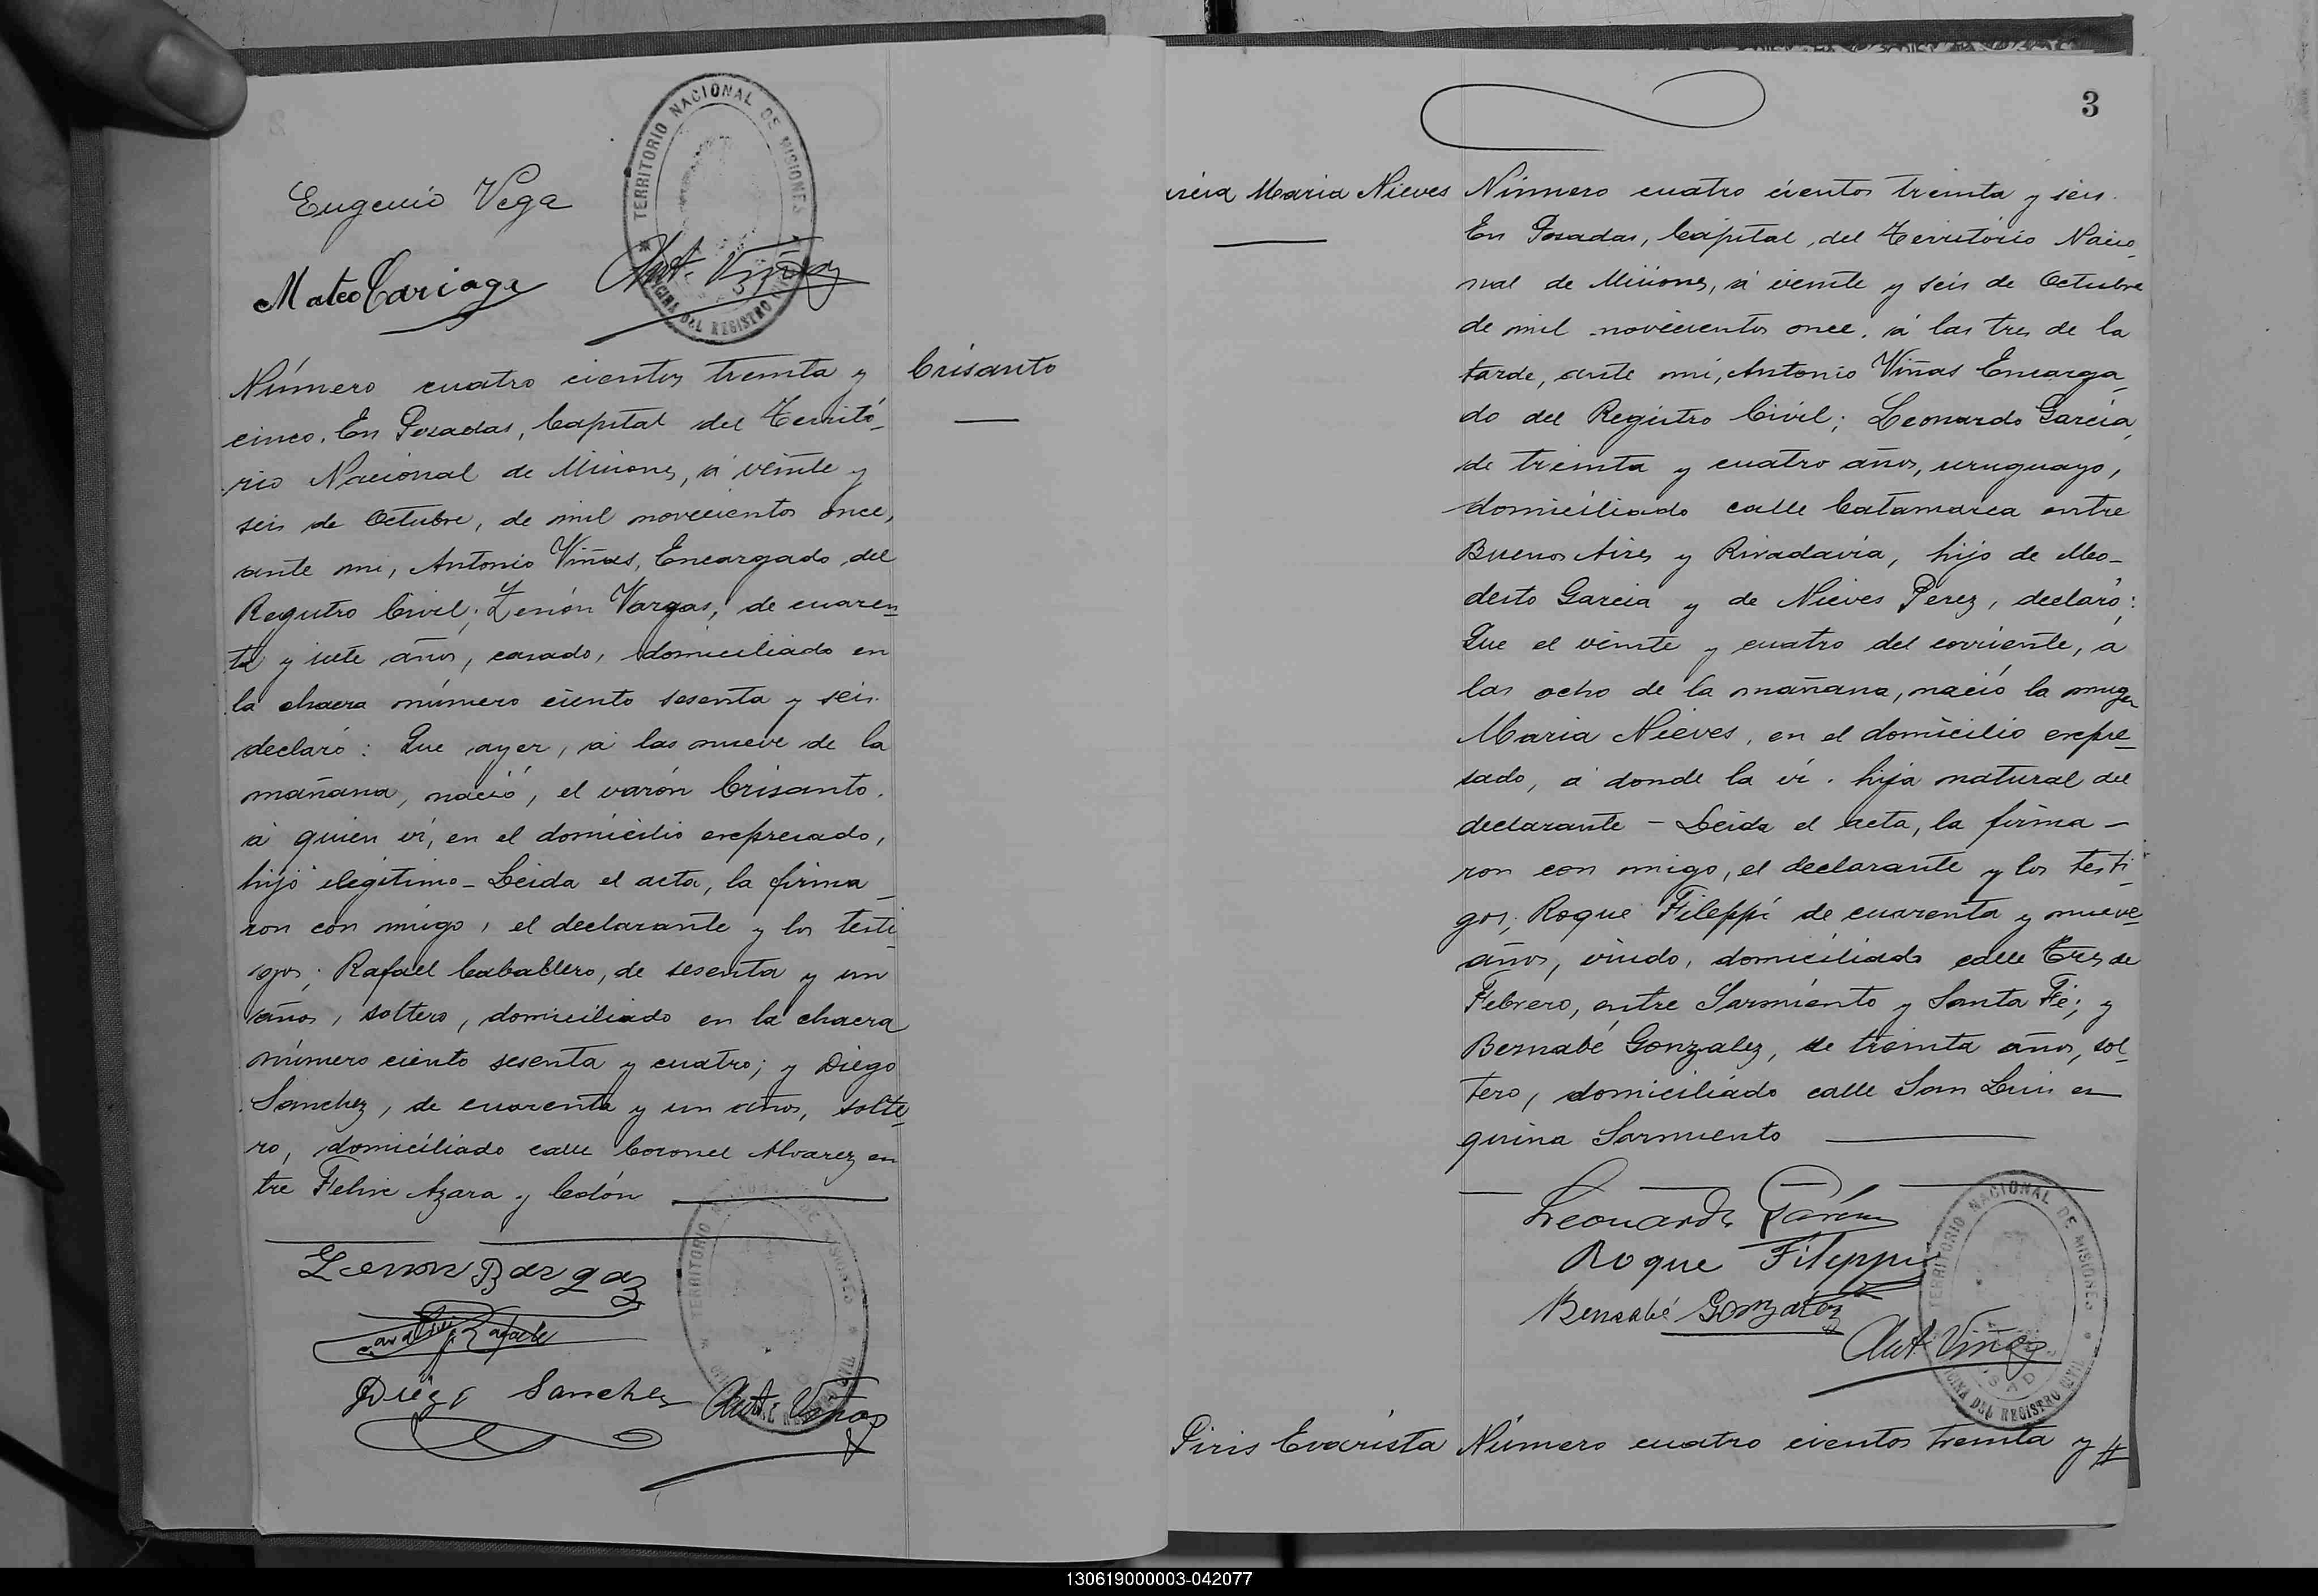 Eugenio Vega
TERRITORIO NACIONAL DE MISIONES
OFICINA DEL REGISTRO CIVIL
Mateo Cariage
Ant. Viñas
Crisanto
Número cuatro cientos treinta y
cinco. En Posadas, Capital del Territó-
rio Nacional de Misiones, á veinte y
seis de Octubre, de mil novecientos once,
ante mi, Antonio Viñas, Encargado del
Registro Civil; Zenón Vargas, de cuaren-
ta y siete años, casado, domiciliado en
la chacra número ciento sesenta y seis.
declaró: Que ayer, á las nueve de la
mañana, nació, el varón Crisanto.
á quien ví, en el domicilio expresado,
hijo ilegítimo - Leida el acta, la firma-
ron con migo, el declarante y los testi-
gos; Rafael Caballero, de sesenta y un
años, soltero, domiciliado en la chacra
número ciento sesenta y cuatro; y Diego
Sanchez, de cuarenta y un años, solte-
ro, domiciliado calle Coronel Alvarez en
tre Felix Azara y Colón
Zenon Bargaz
Rafael
Diego Sanchez
Ant. Viñas
TERRITORIO NACIONAL DE MISIONES
OFICINA DEL REGISTRO CIVIL
3
Maria Nieves
Número cuatro cientos treinta y seis.
En Posadas, Capital del Territorio Nacio-
nal de Misiones, á veinte y seis de Octubre
de mil novecientos once, á las tres de la
tarde, ante mi, Antonio Viñas Encarga-
do del Registro Civil; Leonardo Garcia,
de treinta y cuatro años, uruguayo,
domiciliado calle Catamarca entre
Buenos Aires y Rivadavia, hijo de Mo-
desto Garcia y de Nieves Perez, declaró:
Que el veinte y cuatro del corriente, á
las ocho de la mañana, nació la muger
Maria Nieves, en el domicilio expre-
sado, á donde la ví. hija natural del
declarante - Leida el acta, la firma-
ron con migo, el declarante y los testi-
gos; Roque Fileppi de cuarenta y nueve
años, viudo, domiciliado calle Tres de
Febrero, entre Sarmiento y Santa Fé; y
Bernabé Gonzalez, de treinta años, sol-
tero, domiciliado calle San Luis es
quina Sarmiento
Leonardo Garcia
Roque Fileppi
Bernabé Gonzalez
Ant. Viñas
TERRITORIO NACIONAL DE MISIONES
OFICINA DEL REGISTRO CIVIL
POSADAS
Piris Evarista
Número cuatro cientos treinta y
130619000003-042077